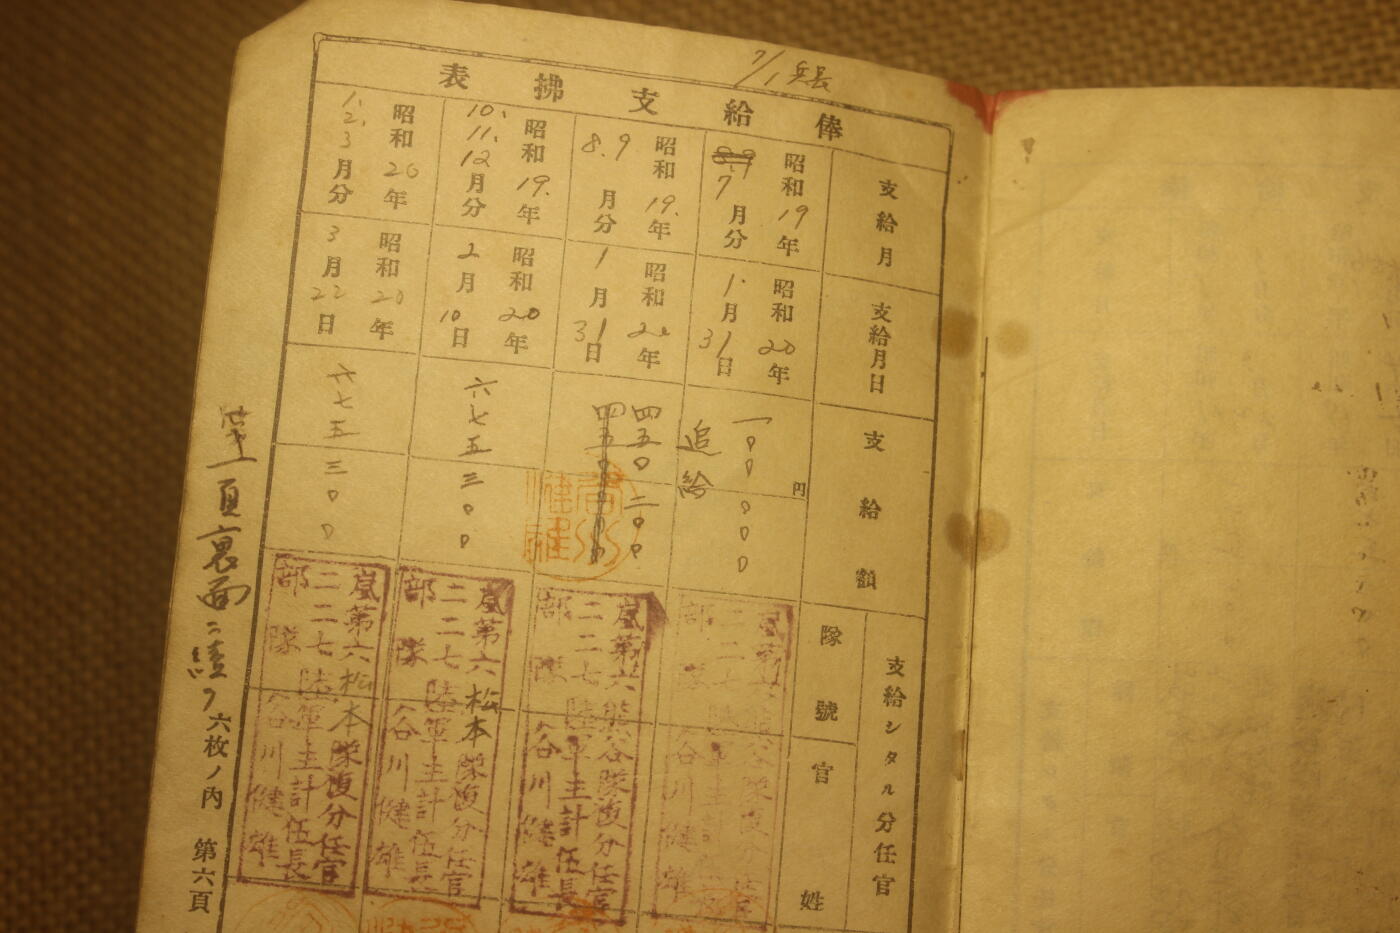 7/1 兵長
俸給支拂表
支給月
支給月日
支給額
支給シタル分任官
隊號
官
姓
昭和19年
8.9 7月分
昭和20年
1.月31日
一〇〇円〇〇〇
追給
昭和19.年
8.9月分
昭和20年
1月31日
四五〇二〇〇
昭和19.年
10.11.12月分
昭和20年
2月10日
六七五三〇〇
昭和20年
1.2.3月分
昭和20年
3月22日
六七五三〇〇
嵐第六
二二七
部隊
熊谷隊復分任官
陸軍主計伍長
谷川健雄
嵐第六
二二七
部隊
熊谷隊復分任官
陸軍主計伍長
谷川健雄
嵐第六
二二七
部隊
松本隊復分任官
陸軍主計伍長
谷川健雄
嵐第六
二二七
部隊
松本隊復分任官
陸軍主計伍長
谷川健雄
頁裏面ニ續ク
六枚ノ内 第六頁